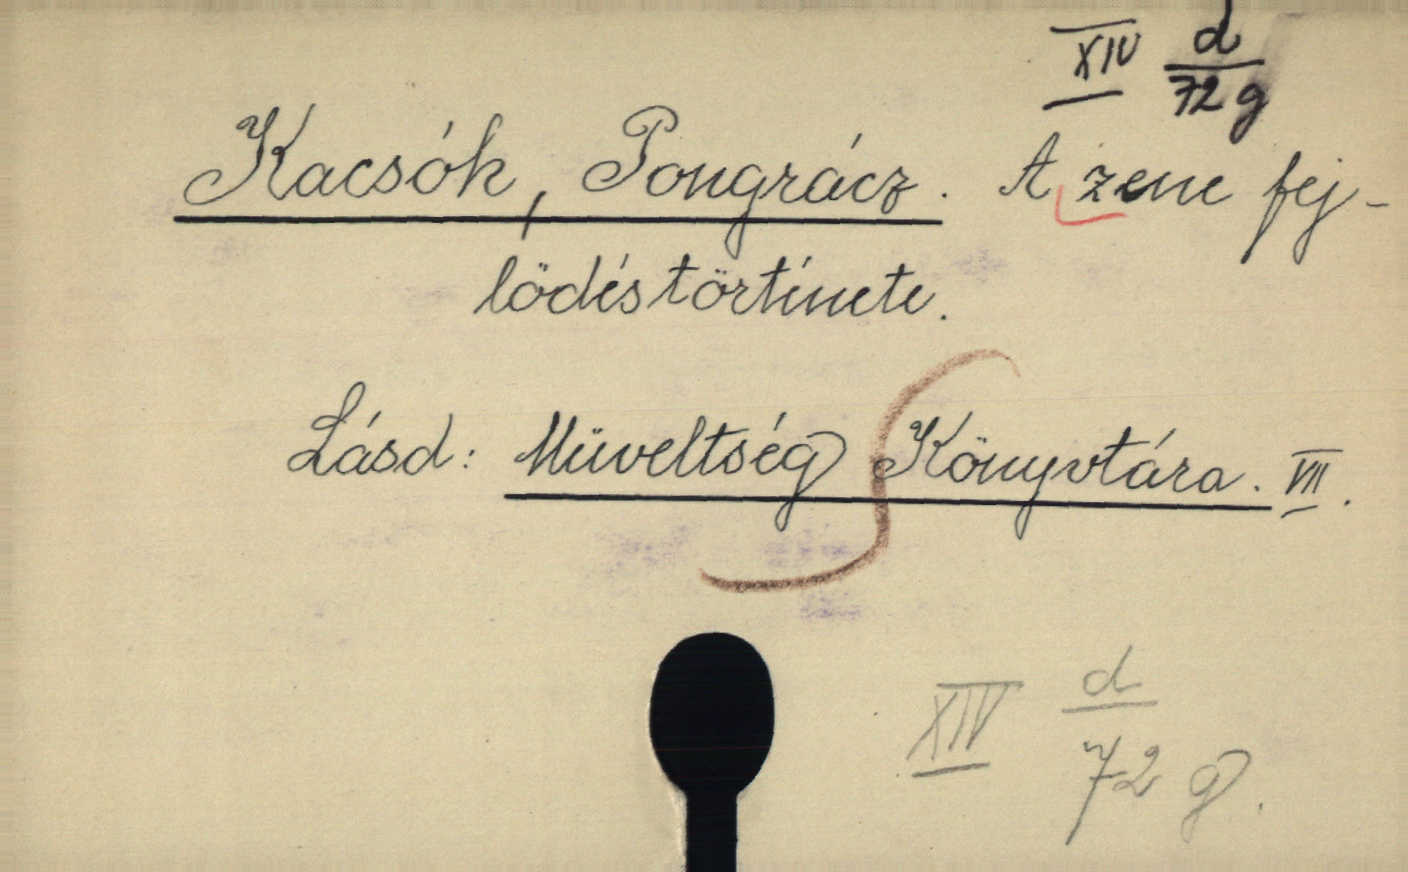 XIV d/72g
Kacsók, Pongrácz. A zene fej-
lödéstörténete.
Lásd: Müveltség Könyvtára. VII.
XIV d/72 g.